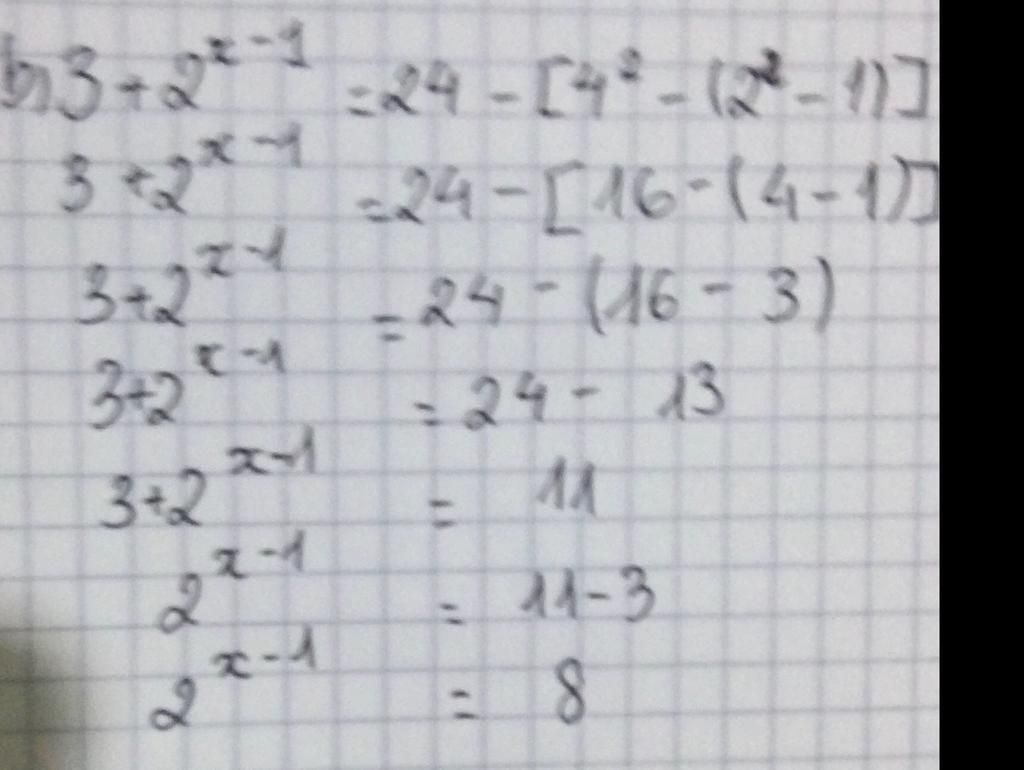 b) 3 + 2^{x-1} = 24 - [4^2 - (2^2 - 1)]
3 + 2^{x-1} = 24 - [16 - (4 - 1)]
3 + 2^{x-1} = 24 - (16 - 3)
3 + 2^{x-1} = 24 - 13
3 + 2^{x-1} = 11
2^{x-1} = 11 - 3
2^{x-1} = 8